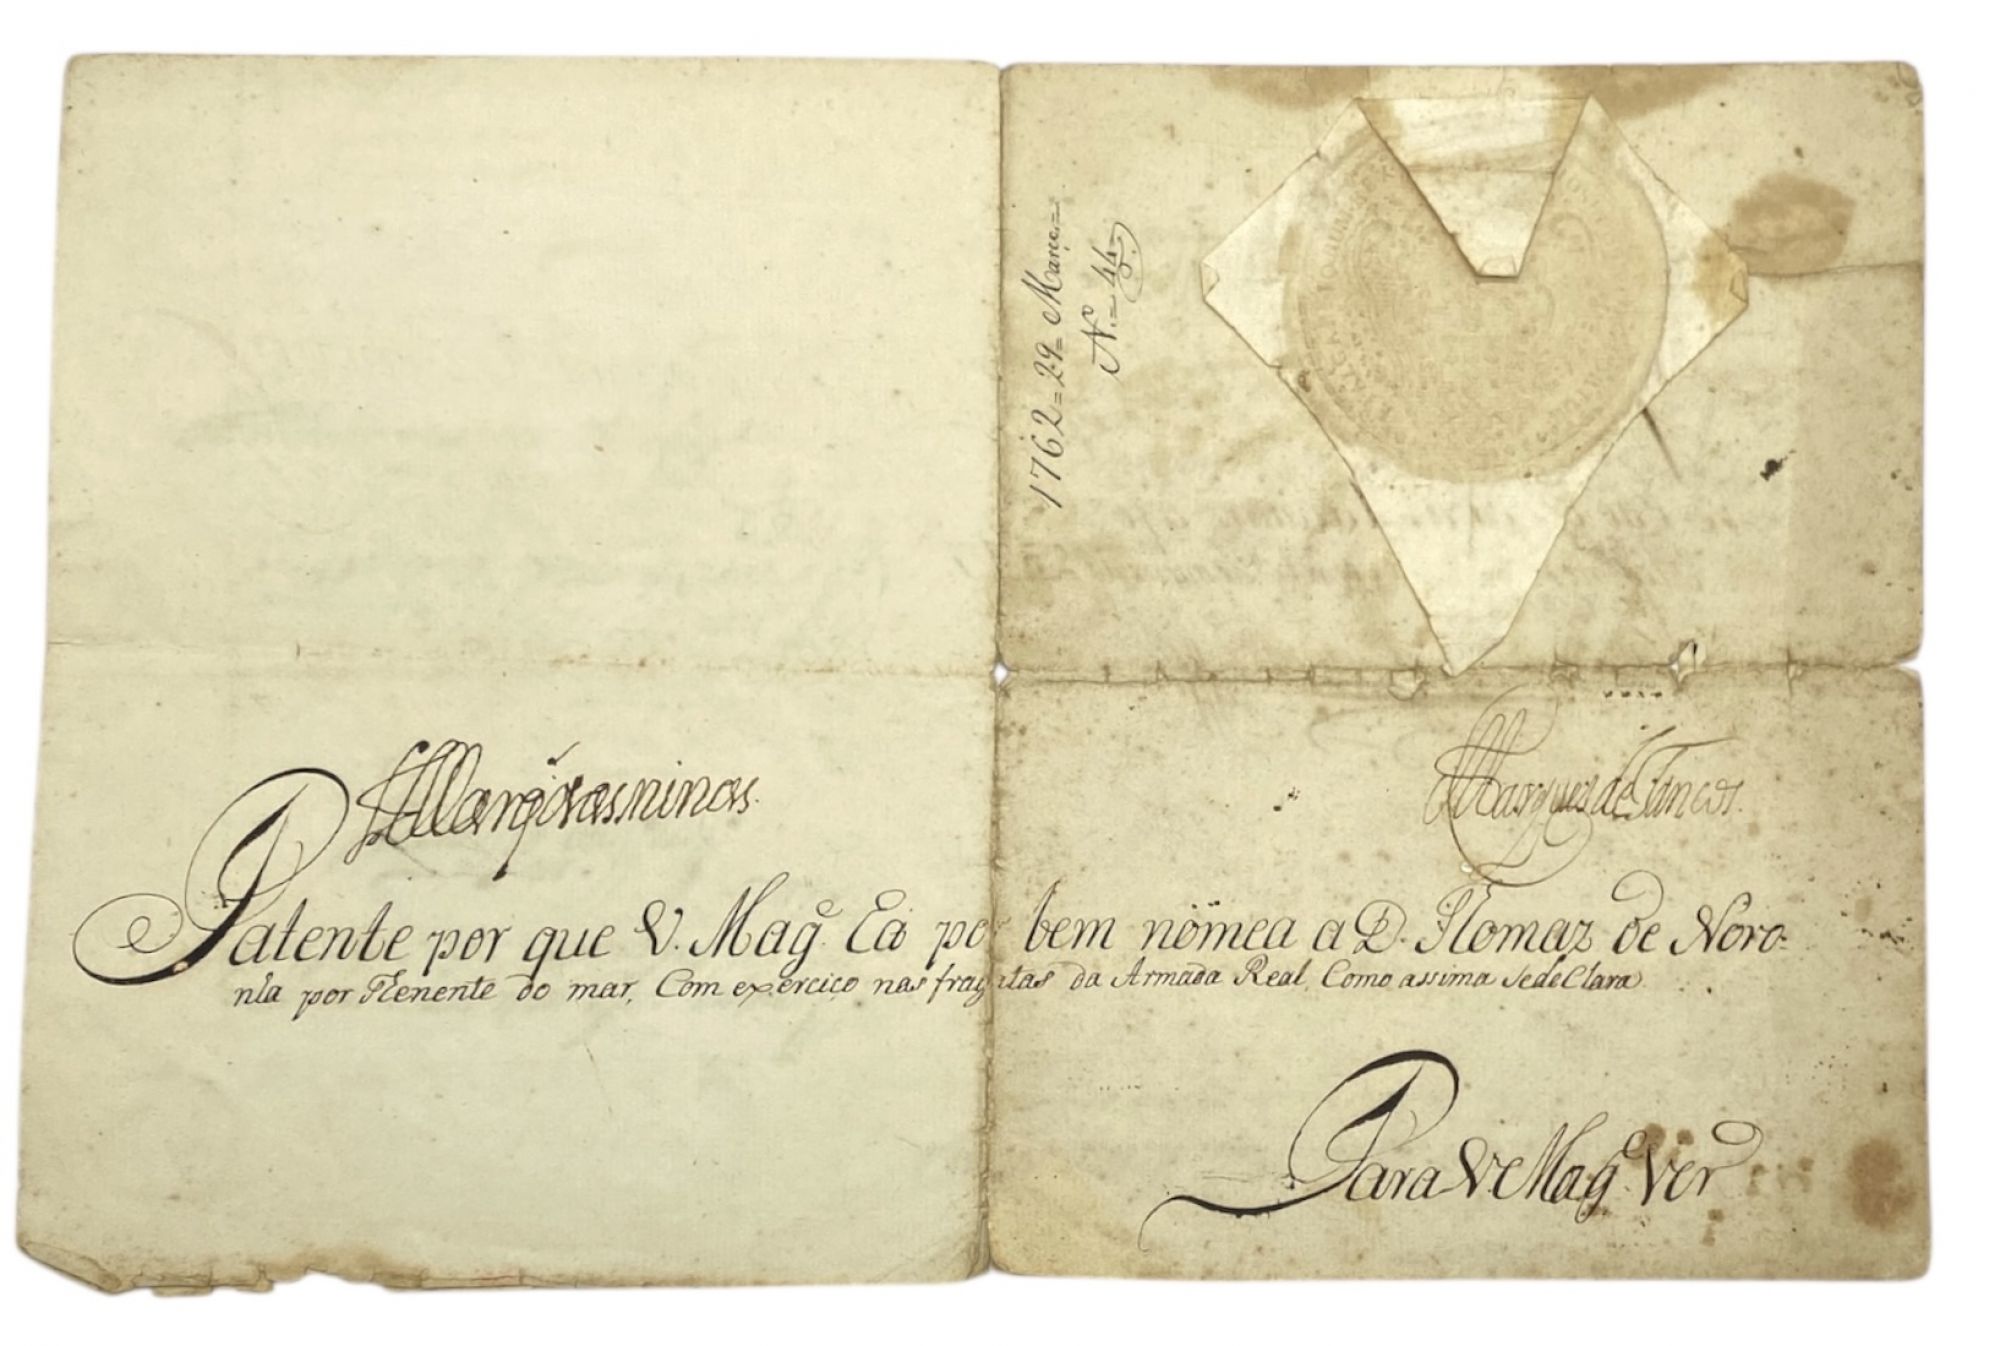 1762=29=Março=
Nº.=44=
Marq̃ dasminas.
Marques de Tancos.
Patente por que V. Magᵉ. Ea por bem nomea a D. Thomaz de Noro-
nha por Thenente do mar, Com exerciço nas fragatas da Armada Real, Como assima Sede Clara
Para V. Magᵉ Ver